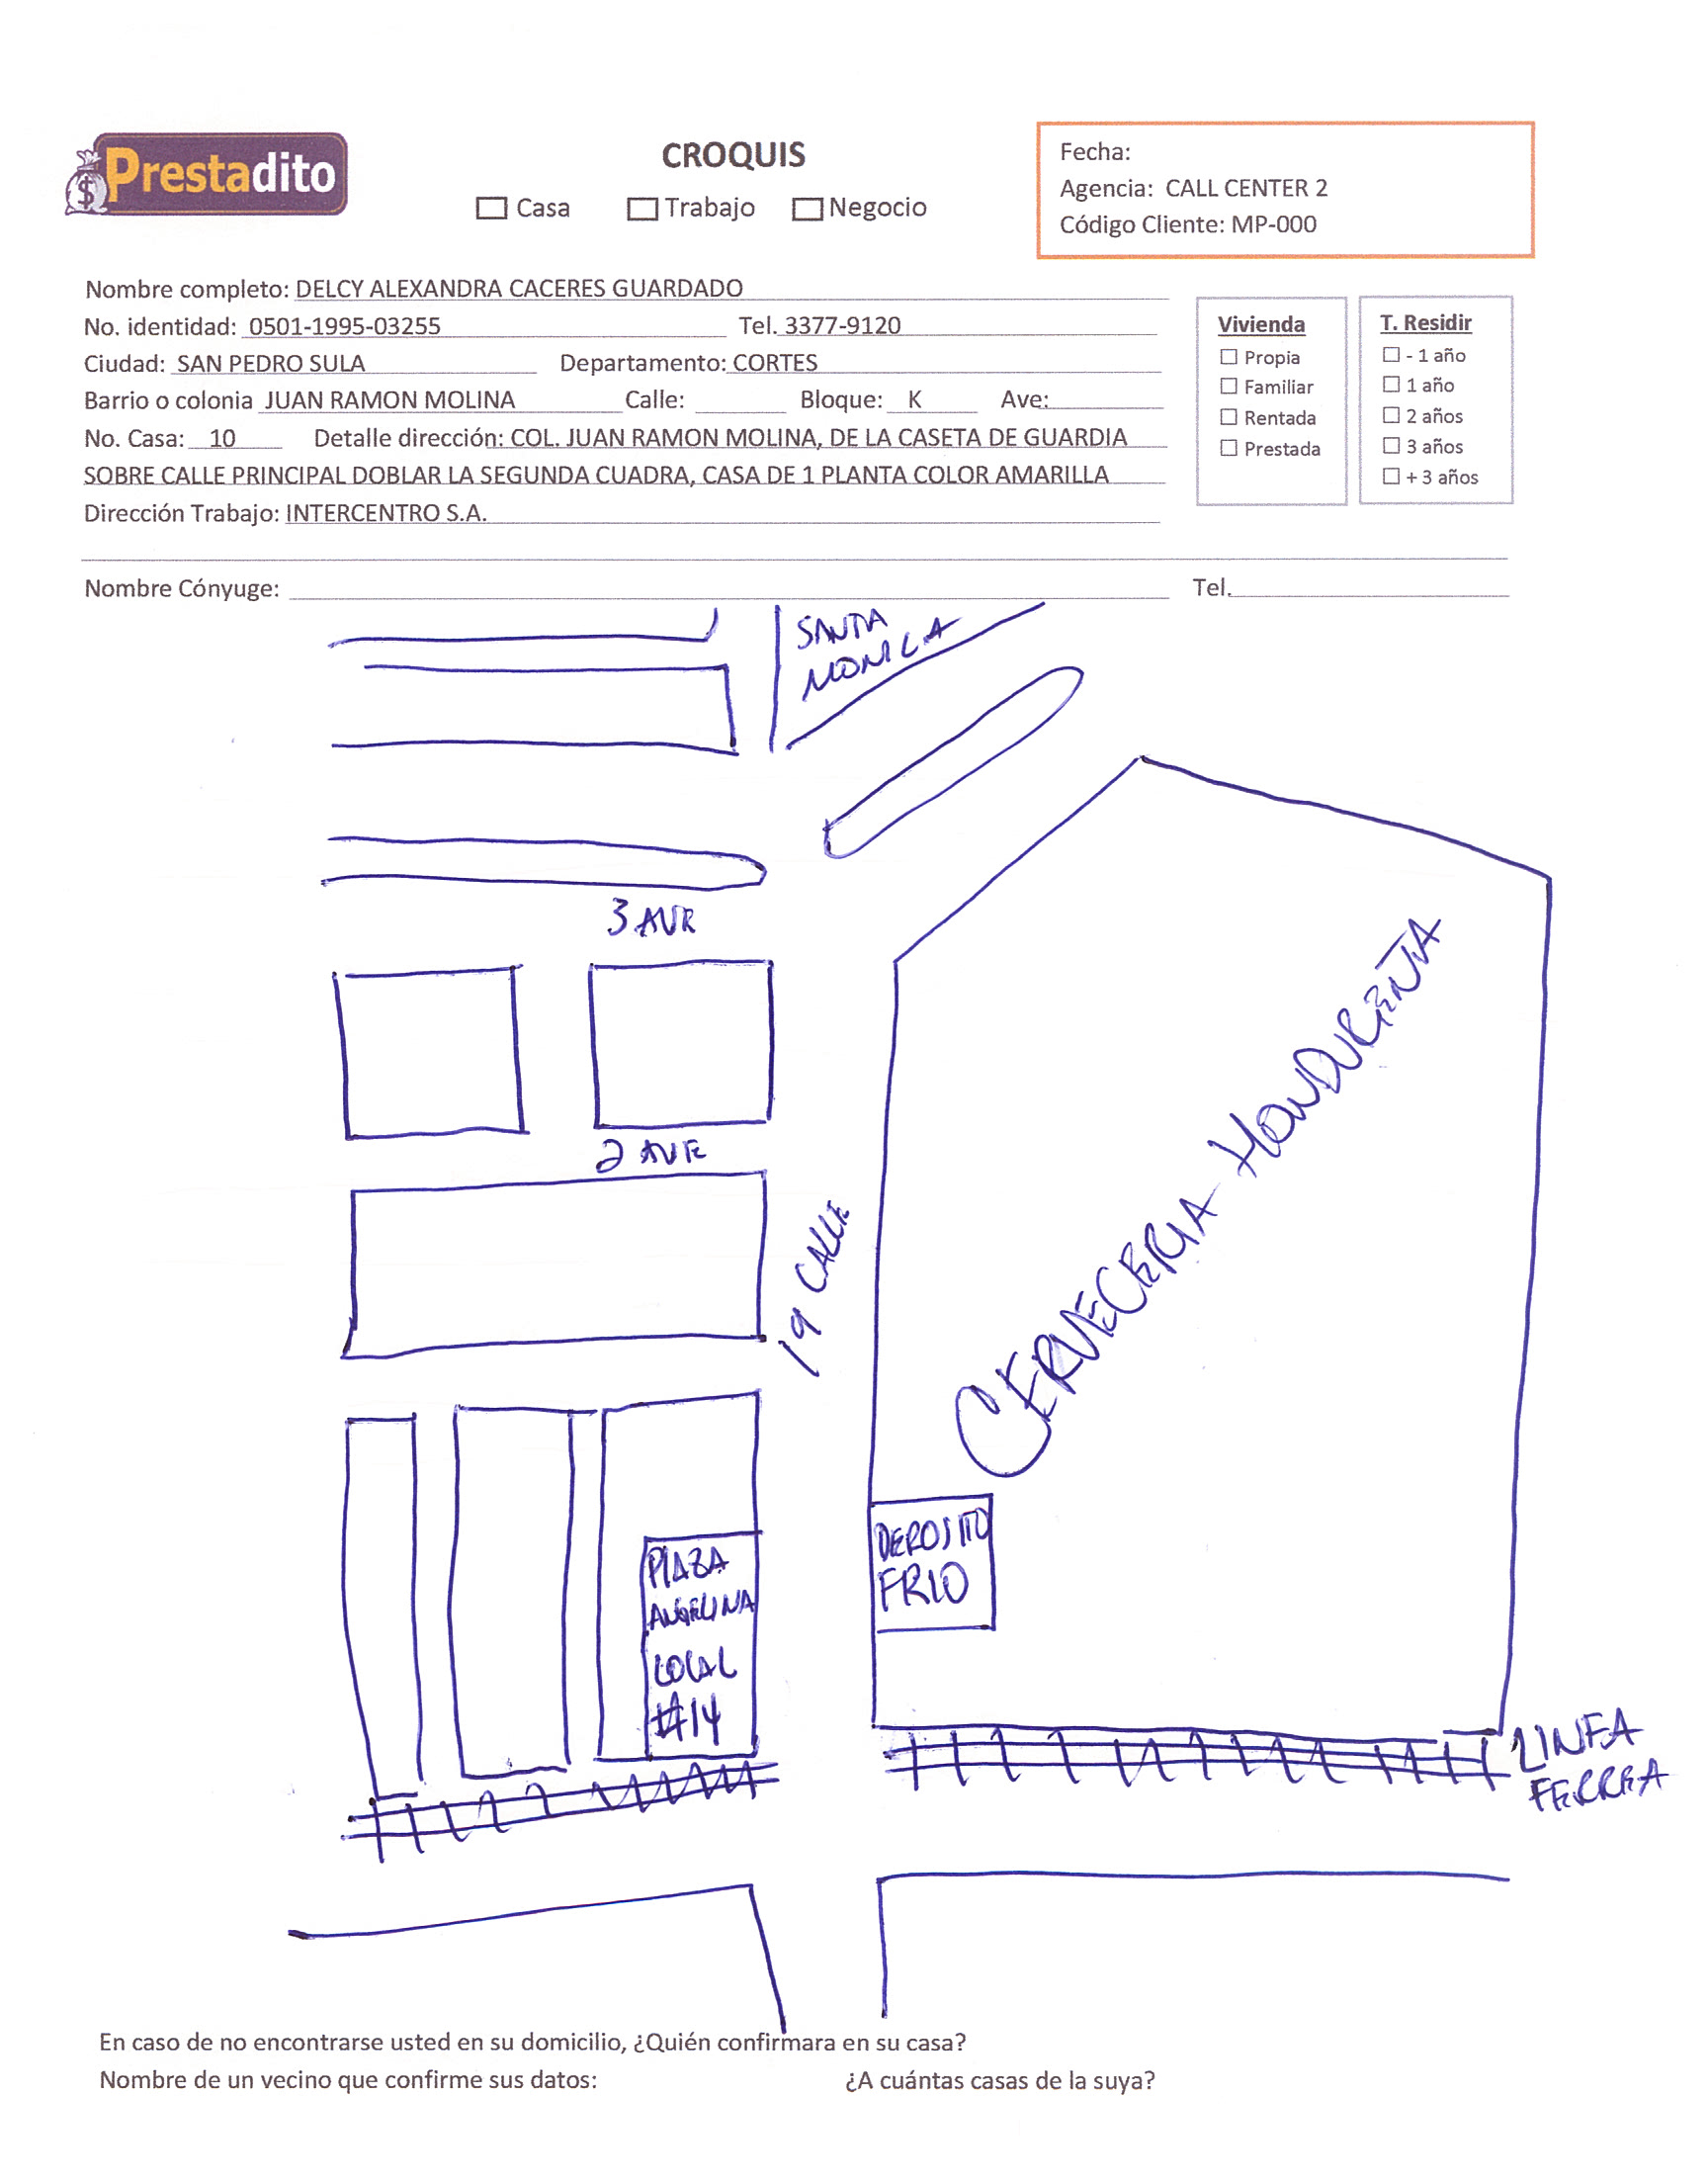 Prestadito
CROQUIS
Casa Trabajo Negocio
Fecha:
Agencia: CALL CENTER 2
Código Cliente: MP-000
Nombre completo: DELCY ALEXANDRA CACERES GUARDADO
No. identidad: 0501-1995-03255 Tel. 3377-9120
Ciudad: SAN PEDRO SULA Departamento: CORTES
Barrio o colonia JUAN RAMON MOLINA Calle: Bloque: K Ave:
No. Casa: 10 Detalle dirección: COL. JUAN RAMON MOLINA, DE LA CASETA DE GUARDIA
SOBRE CALLE PRINCIPAL DOBLAR LA SEGUNDA CUADRA, CASA DE 1 PLANTA COLOR AMARILLA
Dirección Trabajo: INTERCENTRO S.A.
Vivienda
Propia
Familiar
Rentada
Prestada
T. Residir
- 1 año
1 año
2 años
3 años
+ 3 años
Nombre Cónyuge: Tel.
SANTA
MONICA
3 AVE
2 AVE
19 CALLE
CERVECERIA HONDUREÑA
DEPOSITO
FRIO
PLAZA
ANGELINA
LOCAL
#14
LINEA
FERREA
En caso de no encontrarse usted en su domicilio, ¿Quién confirmara en su casa?
Nombre de un vecino que confirme sus datos: ¿A cuántas casas de la suya?